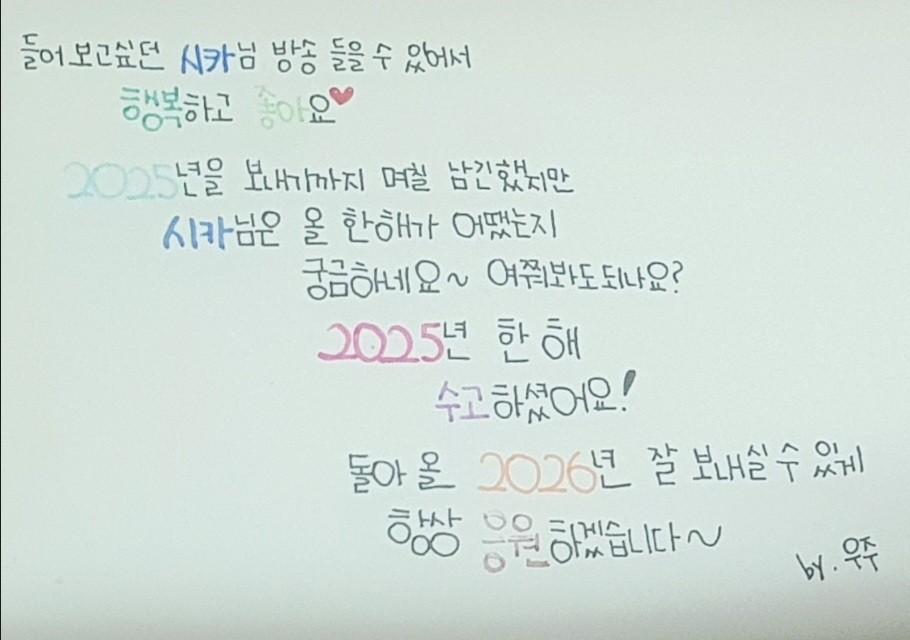 들어보고싶던 시카님 방송 들을 수 있어서
행복하고 좋아요❤
2025년을 보내기까지 며칠 남긴했지만
시카님은 올 한해가 어땠는지
궁금하네요~ 여쭤봐도되나요?
2025년 한 해
수고하셨어요!
돌아올 2026년 잘 보내실 수 있게
항상 응원하겠습니다~
by. 우주